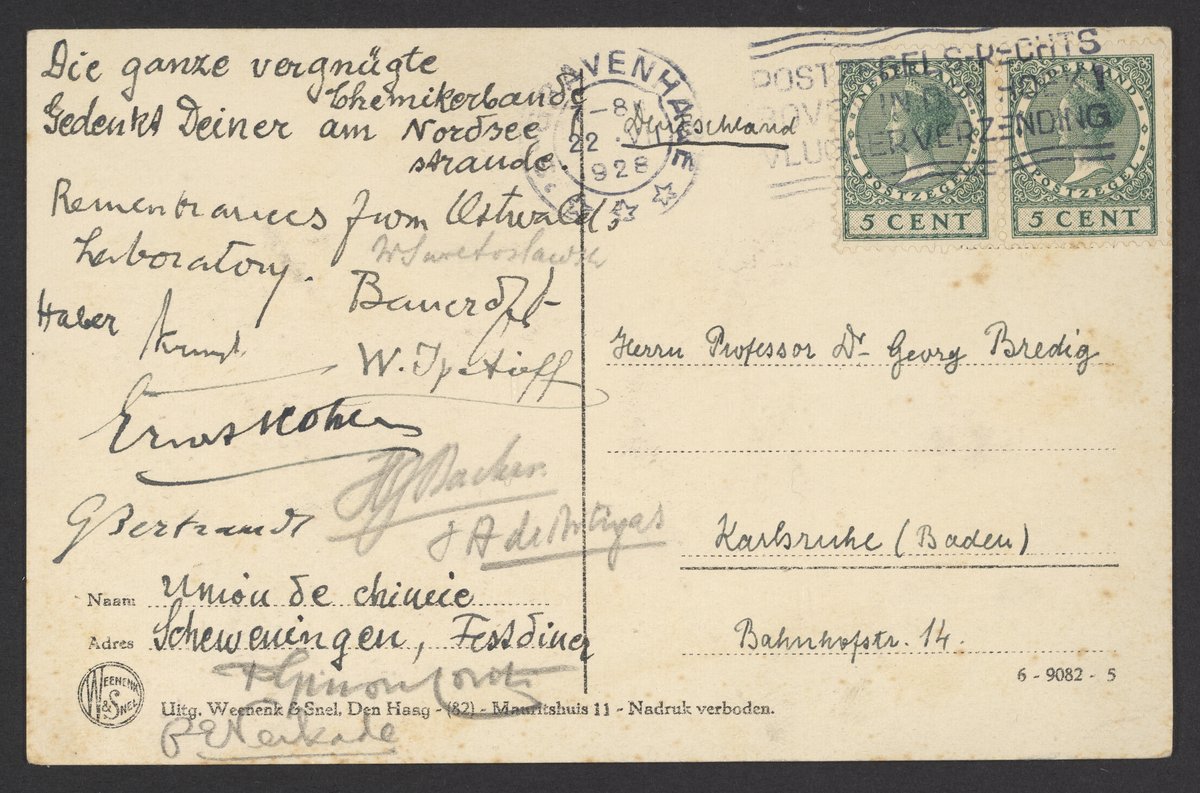 Die ganze vergnügte
Chemikerbande
Gedenkt Deiner am Nordsee
strande.
Remembrances from Ostwald's
Laboratory.
W Swietoslawski
Bancroft
Haber
W. Ipatieff
Ernst Cohen
HJ Backer
G Bertrand
Naam Union de chimie
Adres Scheweningen, Festdiner
WEENENK & SNEL
Uitg. Weenenk & Snel, Den Haag - (82) - Mauritshuis 11 - Nadruk verboden.
PE Verkade
'S GRAVENHAGE
22 .VI
1928
Deutschland
POSTZEGELS RECHTS
BOVEN IN DEN HOEK
VLUGGER VERZENDING
NEDERLAND
POSTZEGEL
5 CENT
NEDERLAND
POSTZEGEL
5 CENT
Herrn Professor Dr. Georg Bredig
Karlsruhe (Baden)
Bahnhofstr. 14.
6 - 9082 - 5